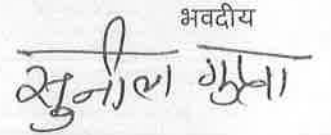 भवदीय
सुनील गुप्ता